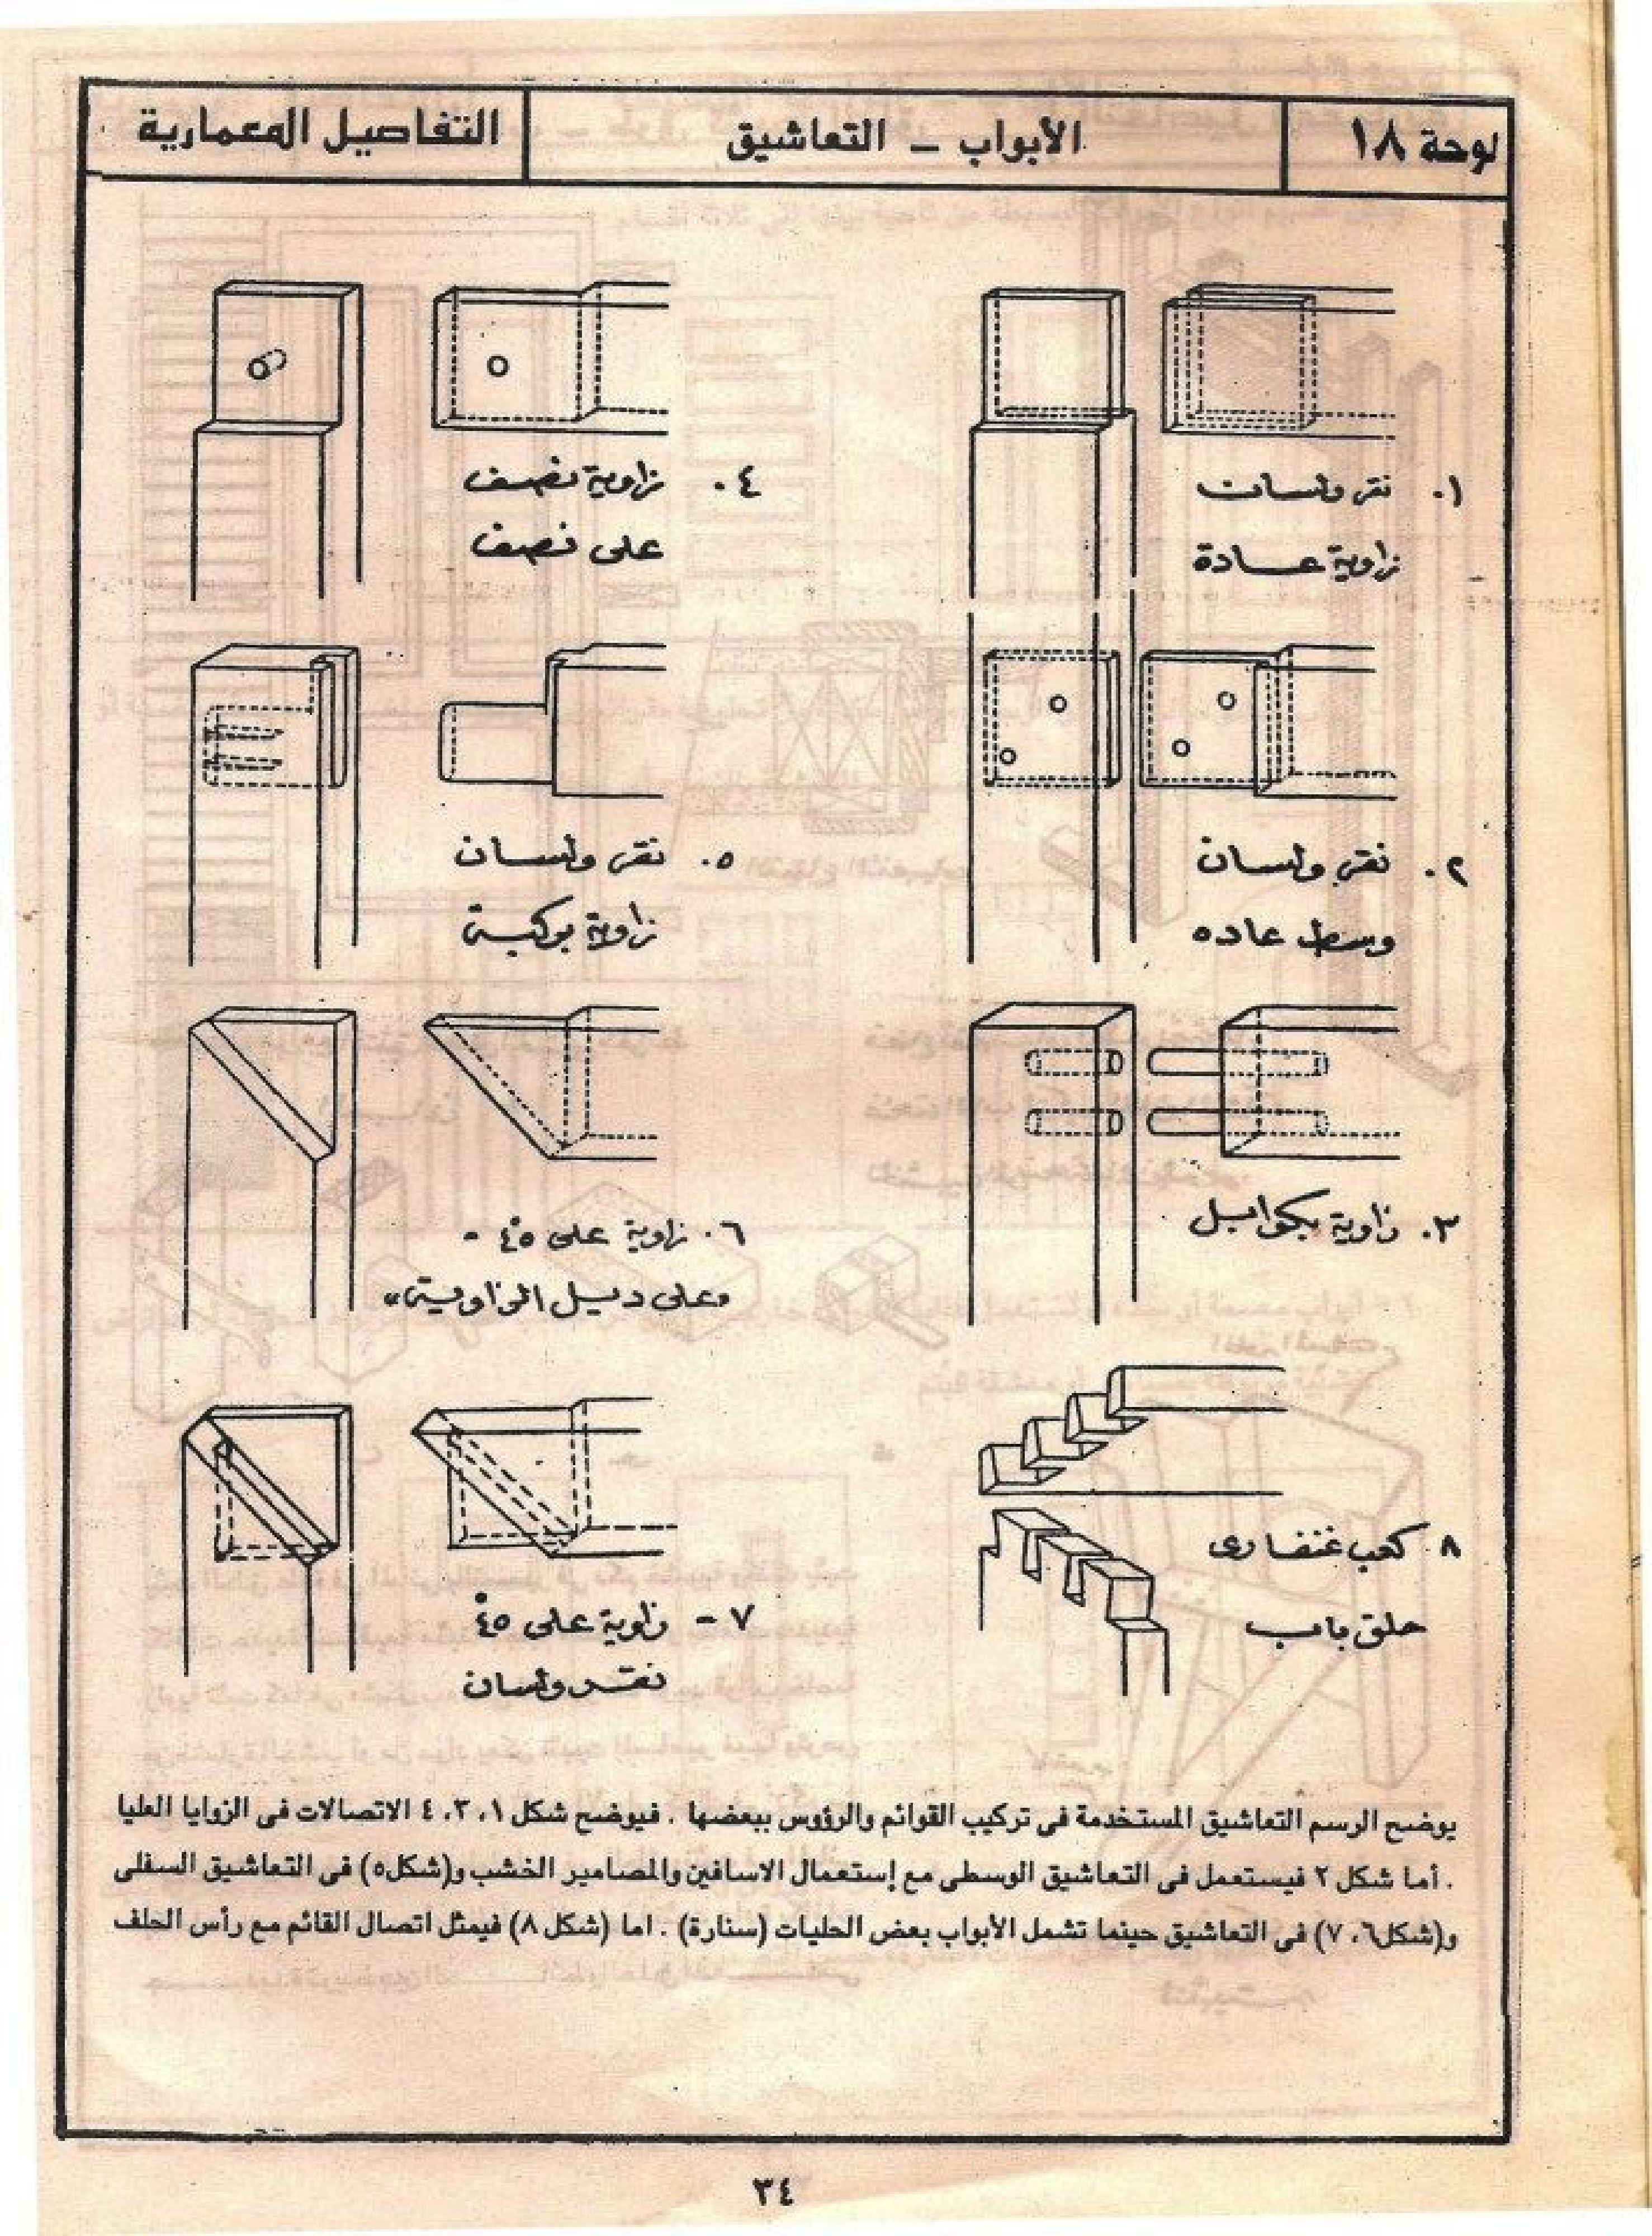 لوحة ١٨
الأبواب – التعاشيق
التفاصيل المعمارية
١. نقر ولسان
زاوية عادة
٤. زاوية نصف
على نصف
٢. نقر ولسان
وسط عاده
٥. نقر ولسان
زاوية بوكبة
٣. زاوية بكوابيل
٦. زاوية على ٤٥°
وعلى ديل الزاوية،،
٨ كعب غنفارى
حلق باب
٧ - زاوية على ٤٥°
نقر ولسان
يوضح الرسم التعاشيق المستخدمة فى تركيب القوائم والرؤوس ببعضها . فيوضح شكل ١، ٣، ٤ الاتصالات فى الزوايا العليا
. أما شكل ٢ فيستعمل فى التعاشيق الوسطى مع إستعمال الاسافين والمصامير الخشب و(شكل٥) فى التعاشيق السفلى
و(شكل٦، ٧) فى التعاشيق حينما تشمل الأبواب بعض الحليات (سنارة) . اما (شكل ٨) فيمثل اتصال القائم مع رأس الحلف
٣٤